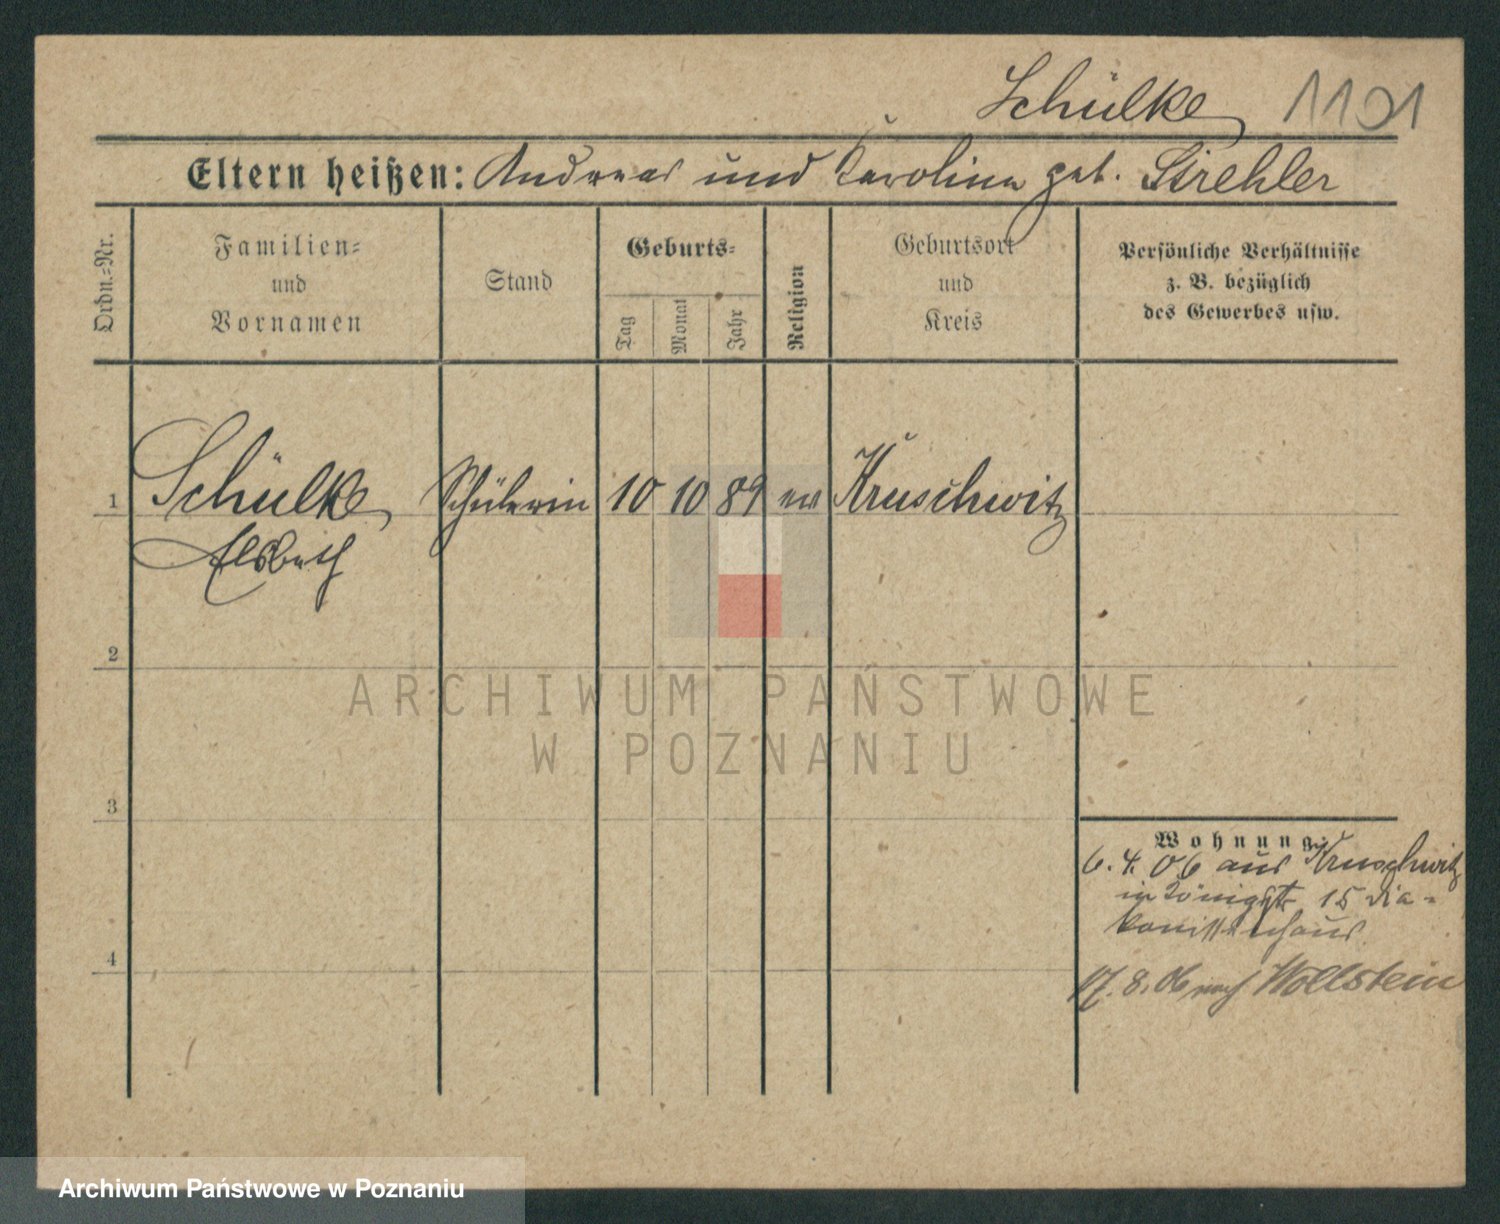 Schülke 1101
Eltern heißen: Andreas und Karoline geb. Strehler
Ordn.=Nr.
Familien=
und
Vornamen
Stand
Geburts=
Tag
Monat
Jahr
Religion
Geburtsort
und
Kreis
Persönliche Verhältnisse
z. B. bezüglich
des Gewerbes usw.
1 Schülke Schülerin 10 10 89 ev Kruschwitz
Elsbeth
2
3
4
Wohnung:
6. 4. 06 aus Kruschwitz
in Königstr 15 Dia-
konissenhaus
17. 8. 06 nach Wollstein
ARCHIWUM PAŃSTWOWE
W POZNANIU
Archiwum Państwowe w Poznaniu